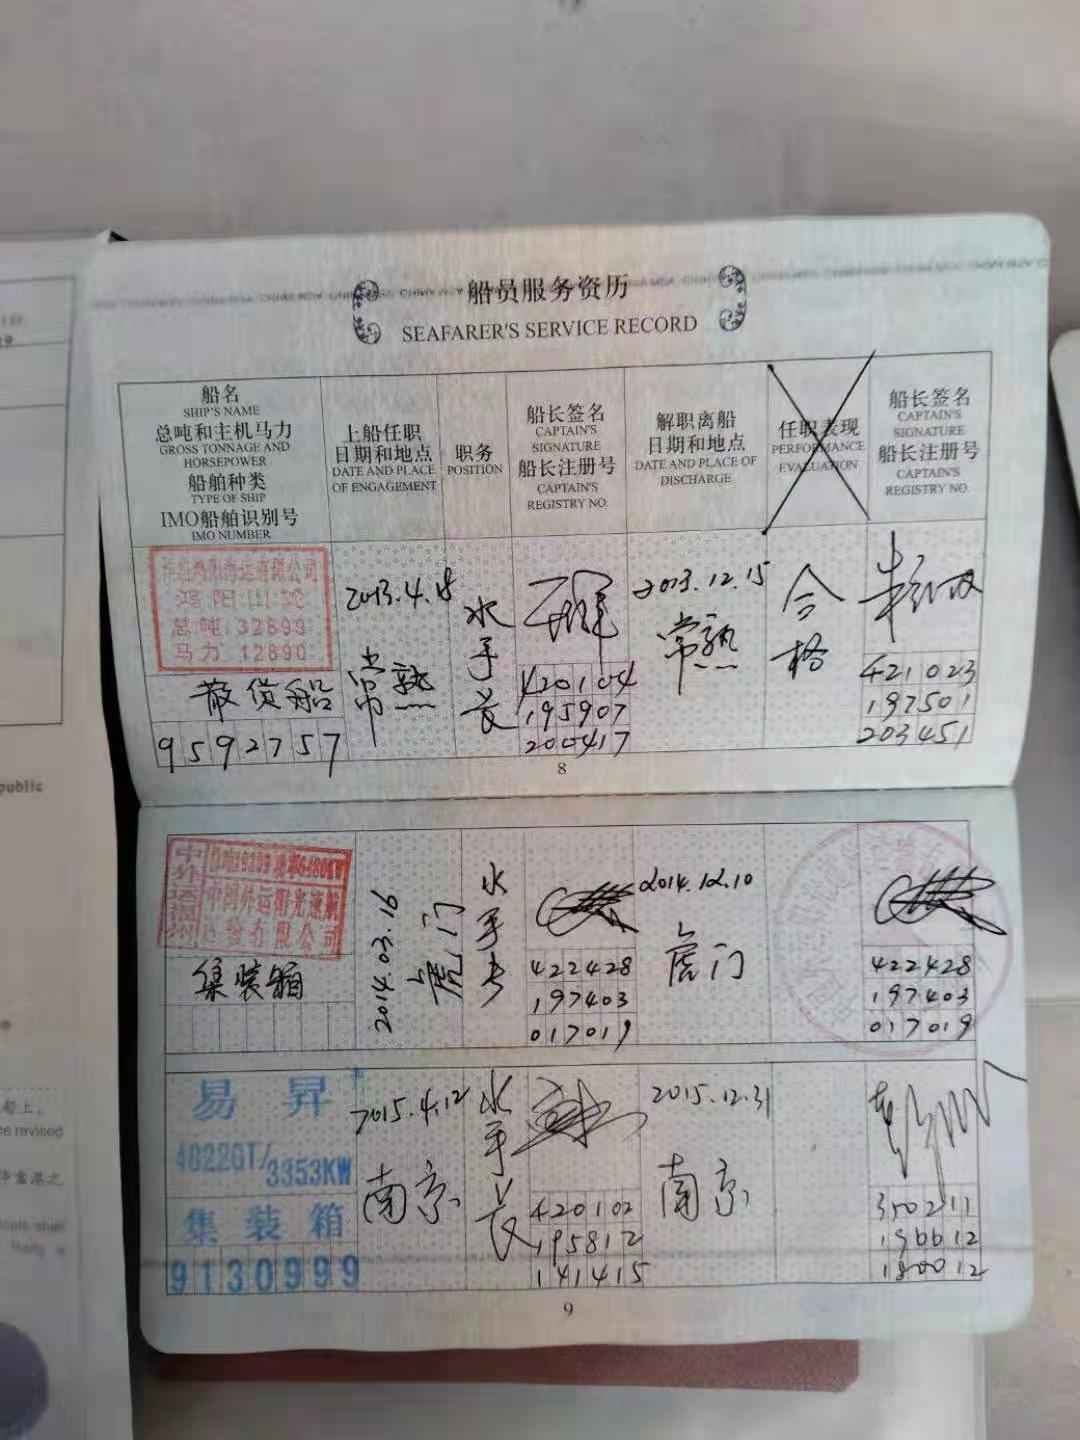 船员服务资历
SEAFARER'S SERVICE RECORD
船名
SHIP'S NAME
总吨和主机马力
GROSS TONNAGE AND
HORSEPOWER
船舶种类
TYPE OF SHIP
IMO船舶识别号
IMO NUMBER
上船任职
日期和地点
DATE AND PLACE
OF ENGAGEMENT
职务
POSITION
船长签名
CAPTAIN'S
SIGNATURE
船长注册号
CAPTAIN'S
REGISTRY NO.
解职离船
日期和地点
DATE AND PLACE OF
DISCHARGE
任职表现
PERFORMANCE
EVALUATION
船长签名
CAPTAIN'S
SIGNATURE
船长注册号
CAPTAIN'S
REGISTRY NO.
鸿阳海运有限公司
鸿阳山轮
总吨 32899
马力 12890
散货船
9592757
2013.4.18
常熟
水手长
420104
195907
200417
2013.12.15
常熟
合格
421023
197501
203451
8
中外运福州
中国外运阳光速航
运发有限公司
集装箱
2014.03.16
虎门
水手长
422428
197403
017019
2014.12.10
虎门
422428
197403
017019
易昇
4822GT/
3353KW
集装箱
9130999
2015.4.12
南京
水手长
420102
195812
141415
2015.12.31
南京
350211
196612
180012
9
public
he revised